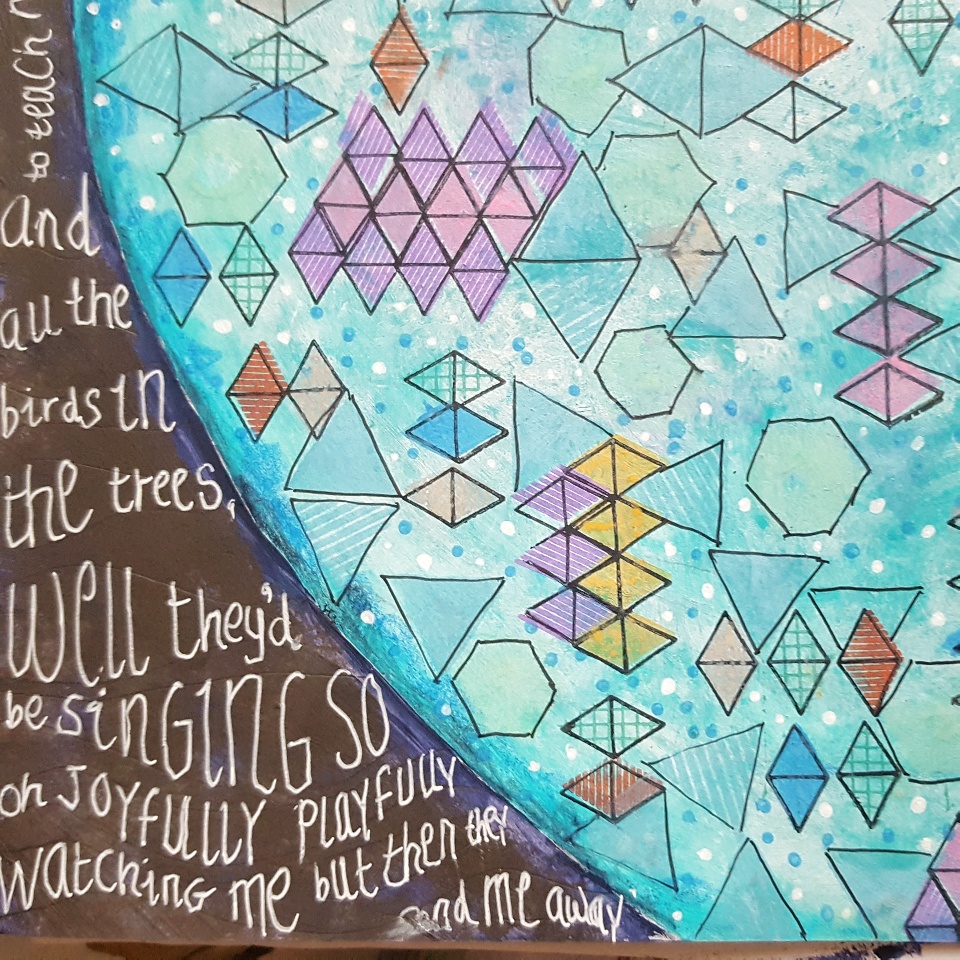 to teach
and
all the
birds in
the trees,
Well they'd
be singing so
oh joyfully playfully
watching me but then they
and me away